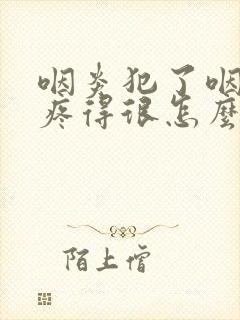 咽炎犯了咽
疼得很怎麼
陌上僧